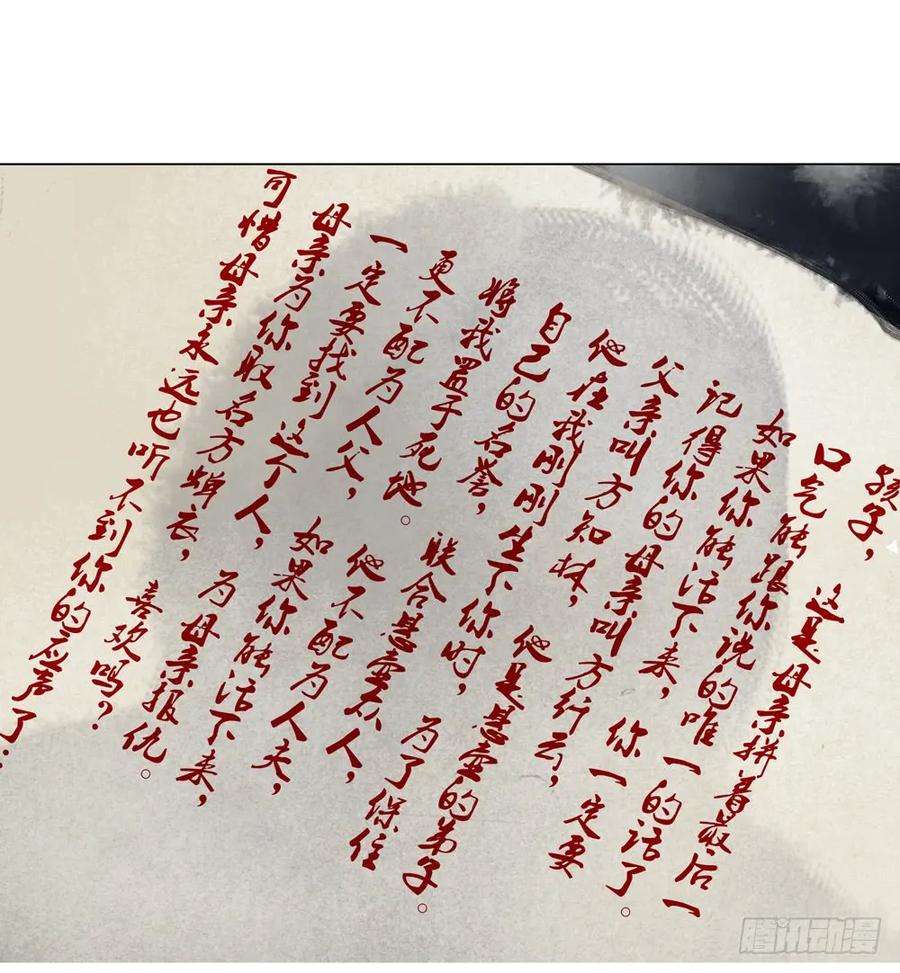 孩子， 这是母亲拼着最后一
口气能跟你说的唯一的话了。
如果你能活下来， 你一定要
记得你的母亲叫方行云，
父亲叫方知林， 他是悬壶的弟子。
他在我刚刚生下你时， 为了保住
自己的名誉， 联合悬壶众人，
将我置于死地。 他不配为人夫，
更不配为人父， 如果你能活下来，
一定要找到这个人， 为母亲报仇。
母亲为你取名方焯衣， 喜欢吗？
可惜母亲永远也听不到你的应声了…
腾讯动漫